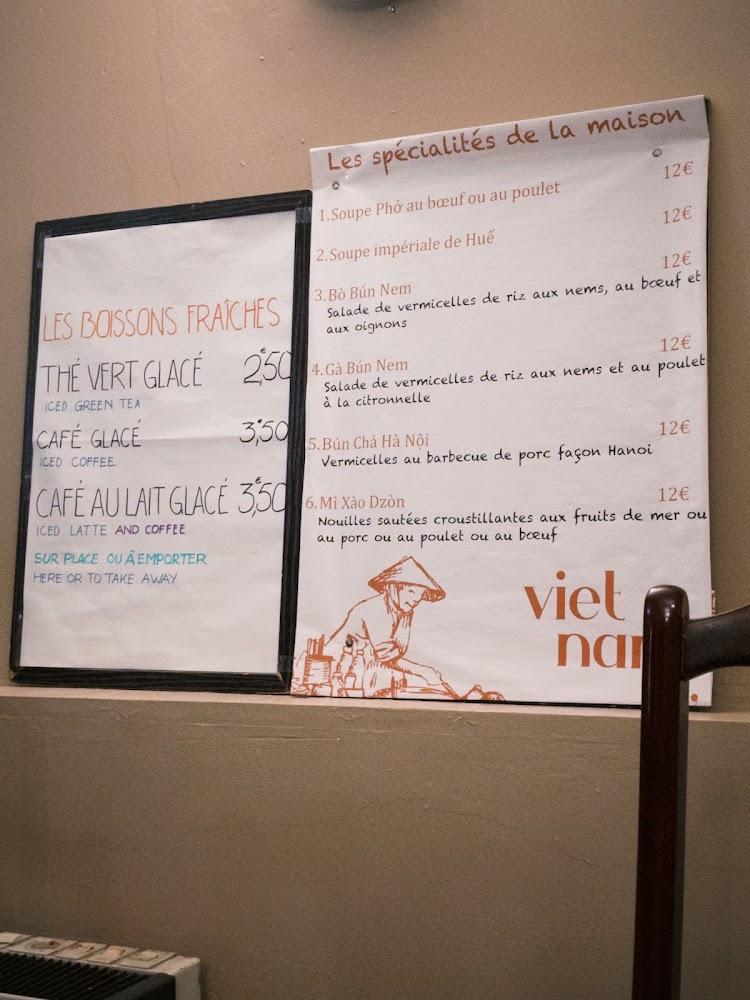 LES BOISSONS FRAÎCHES
THÉ VERT GLACÉ 2€,50
ICED GREEN TEA
CAFÉ GLACÉ 3€,50
ICED COFFEE
CAFÉ AU LAIT GLACÉ 3€,50
ICED LATTE AND COFFEE
SUR PLACE OU À EMPORTER
HERE OR TO TAKE AWAY
Les spécialités de la maison
1. Soupe Phở au bœuf ou au poulet 12€
2. Soupe impériale de Huế 12€
3. Bò Bún Nem 12€
Salade de vermicelles de riz aux nems, au bœuf et
aux oignons
4. Gà Bún Nem 12€
Salade de vermicelles de riz aux nems et au poulet
à la citronnelle
5. Bún Chả Hà Nội 12€
Vermicelles au barbecue de porc façon Hanoi
6. Mì Xào Dzòn 12€
Nouilles sautées croustillantes aux fruits de mer ou
au porc ou au poulet ou au bœuf
viet